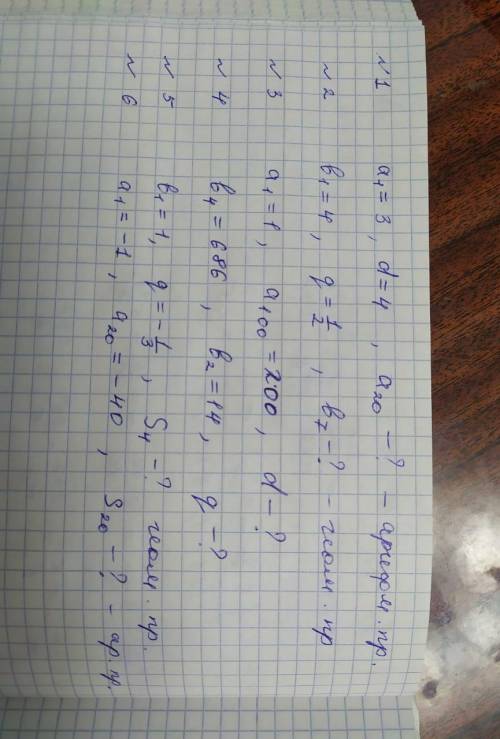 N 1 a₁ = 3, d = 4, a₂₀ – ? – арифм. пр.
N 2 b₁ = 4, q = 1/2, b₇ – ? – геом. пр
N 3 a₁ = 1, a₁₀₀ = 200, d – ?
N 4 b₄ = 686, b₂ = 14, q – ?
N 5 b₁ = 1, q = -1/3, S₄ – ? геом. пр.
N 6 a₁ = -1, a₂₀ = -40, S₂₀ – ? – ар. п.